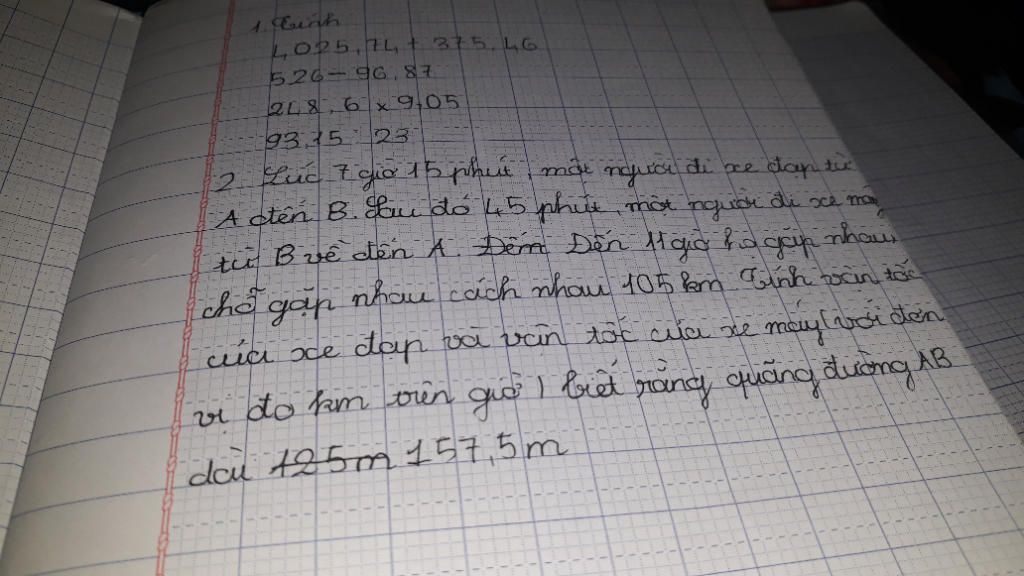 1. Tính
4025,74 + 375,46
526 - 96,87
248,6 x 9,05
93,15 : 23
2 Lúc 7 giờ 15 phút, một người đi xe đạp từ
A đến B. Sau đó 45 phút, một người đi xe máy
từ B về đến A. Đếm Đến 11 giờ họ gặp nhau
chỗ gặp nhau cách nhau 105 km Tính vận tốc
của xe đạp và vận tốc của xe máy (với đơn
vị đo km trên giờ) biết rằng quãng đường AB
dài 125m 157,5m